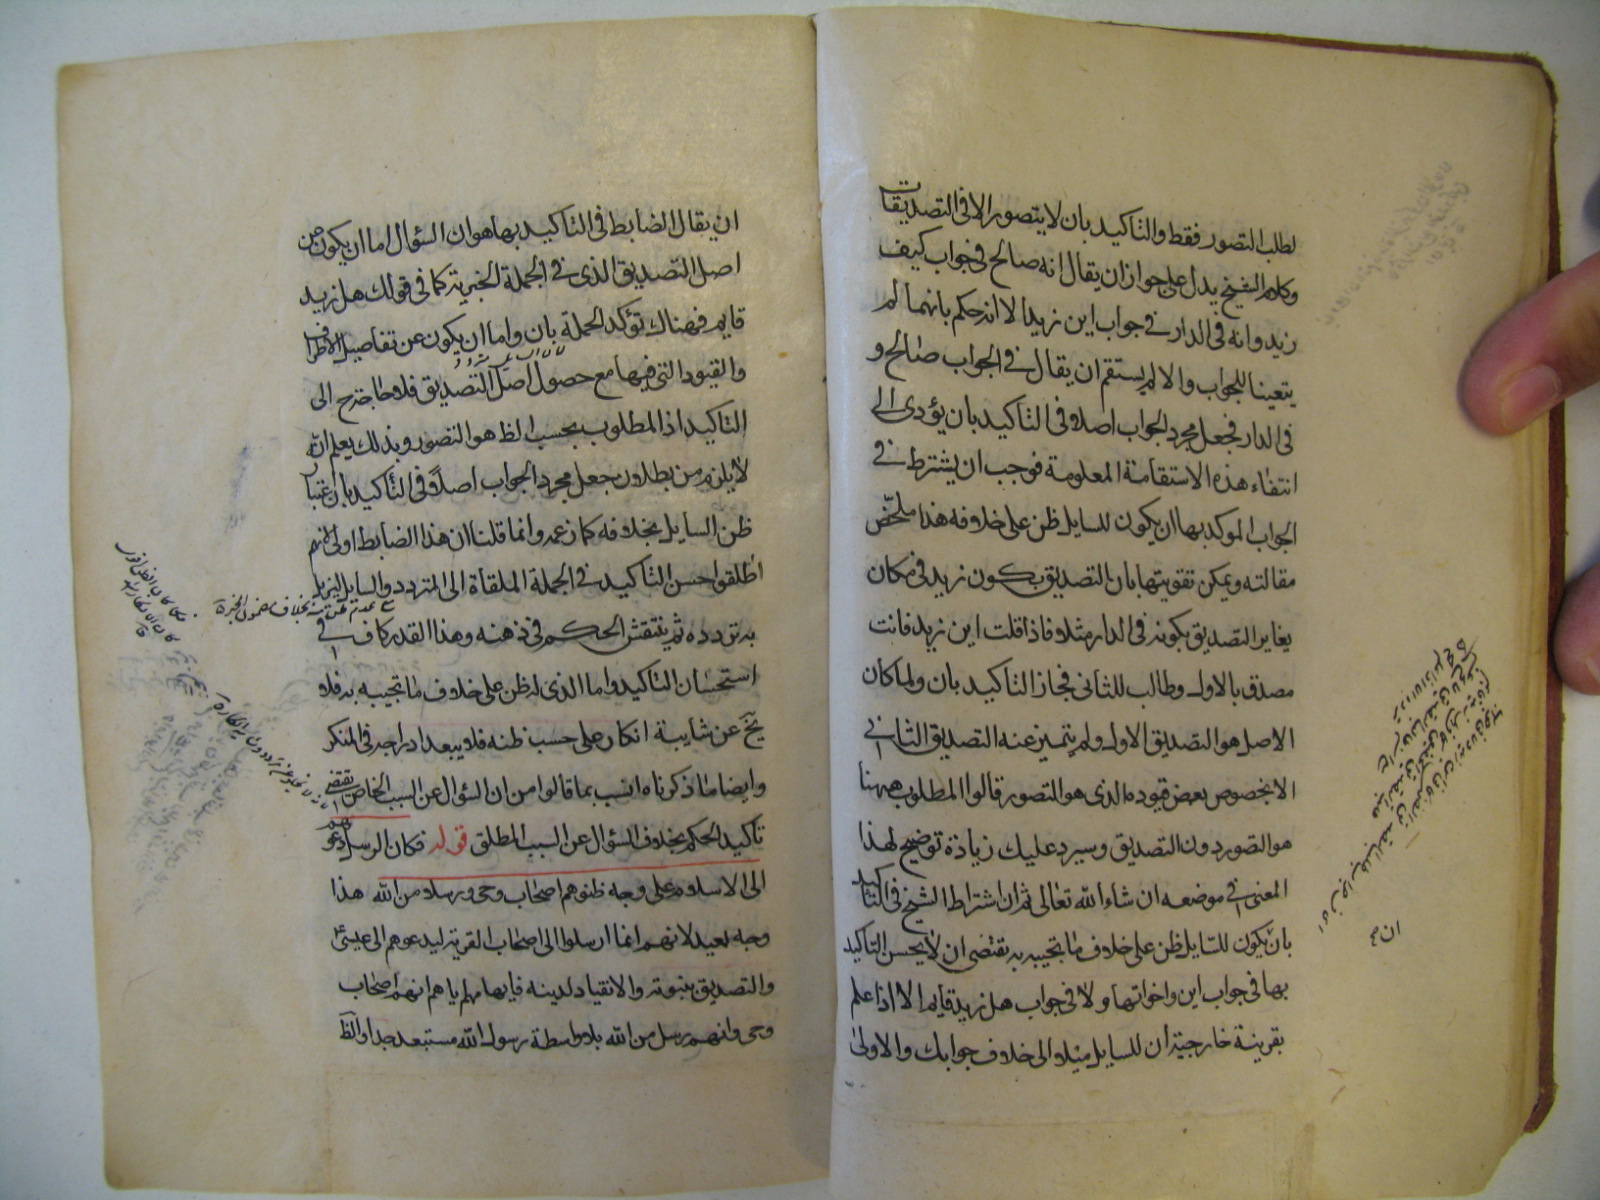 لطلب التصور فقط والتاكيد بان لا يتصور الا فى التصديقات
وكلام الشيخ يدل على جواز ان يقال انه صالح فى جواب كيف
زيد وانه فى الدار فى جواب اين زيد لا انه حكم بانهما لم
يتعينا للجواب والا لم يستقم ان يقال فى الجواب صالح و
فى الدار فجعل مجرد الجواب اصلا فى التاكيد بان يؤدى الى
انتفاء هذه الاستقامة المعلومة فوجب ان يشترط فى
الجواب الموكد بها ان يكون للسايل ظن على خلافه هذا ملخص
مقالته ويمكن تقويتها بان التصديق بكون زيد فى مكان
يغاير التصديق بكونه فى الدار مثلا فاذا قلت اين زيد فانت
مصدق بالاول وطالب للثانى فجاز التاكيد بان ولما كان
الاصل هو التصديق الاول ولم يتميز عنه التصديق الثانى
الا بخصوص بعض قيوده الذى هو التصور قالوا المطلوب ههنا
هو التصور دون التصديق وسيرد عليك زيادة توضيح لهذا
المعنى فى موضعه ان شاء الله تعالى ثم ان اشتراط الشيخ فى التاكيد
بان يكون للسايل ظن على خلاف ما تجيبه به يقتضى ان لا يحسن التاكيد
بها فى جواب اين واخواتها ولا فى جواب هل زيد قايم الا اذا علم
بقرينة خارجية ان للسايل ميلا الى خلاف جوابك والاولى
ان يقال الضابط فى التاكيد بها هو ان السؤال اما ان يكون عن
اصل التصديق الذى فى الجملة الخبرية كما فى قولك هل زيد
قايم فهناك تؤكد الجملة بان واما ان يكون عن تفاصيل الاطراف
والقيود التى فيها مع حصول اصل التصديق فلا حاجة ح الى
التاكيد اذ المطلوب بحسب الظ هو التصور وبذلك يعلم انه
لا يلزم من بطلان جعل مجرد الجواب اصلا فى التاكيد بان اعتبار
ظن السايل بخلافه كما زعمه وانما قلنا ان هذا الضابط اولى لانهم
اطلقوا حسن التاكيد فى الجملة الملقاة الى المتردد والسايل ليزيل
به تردده ثم ينتقش الحكم فى ذهنه وهذا القدر كاف فى
استحسان التاكيد واما الذى له ظن على خلاف ما تجيبه به فلا
يخ عن شايبة انكار على حسب ظنه فلا يبعد ادراجه فى المنكر
وايضا ما ذكرناه انسب بما قالوا من ان السؤال عن السبب الخاص يقتضى
تاكيد الحكم بخلاف السؤال عن السبب المطلق قوله فكان الرسل دعوهم
الى الاسلام على وجه ظنوهم اصحاب وحى ورسلا من الله هذا
وجه بعيد لانهم انما ارسلوا الى اصحاب القرية ليدعوهم الى عيسى
والتصديق بنبوته والانقياد لدينه فايهامهم اياهم انهم اصحاب
وحى وانهم رسل من الله بلا واسطة رسول الله مستبعد جدا والظ